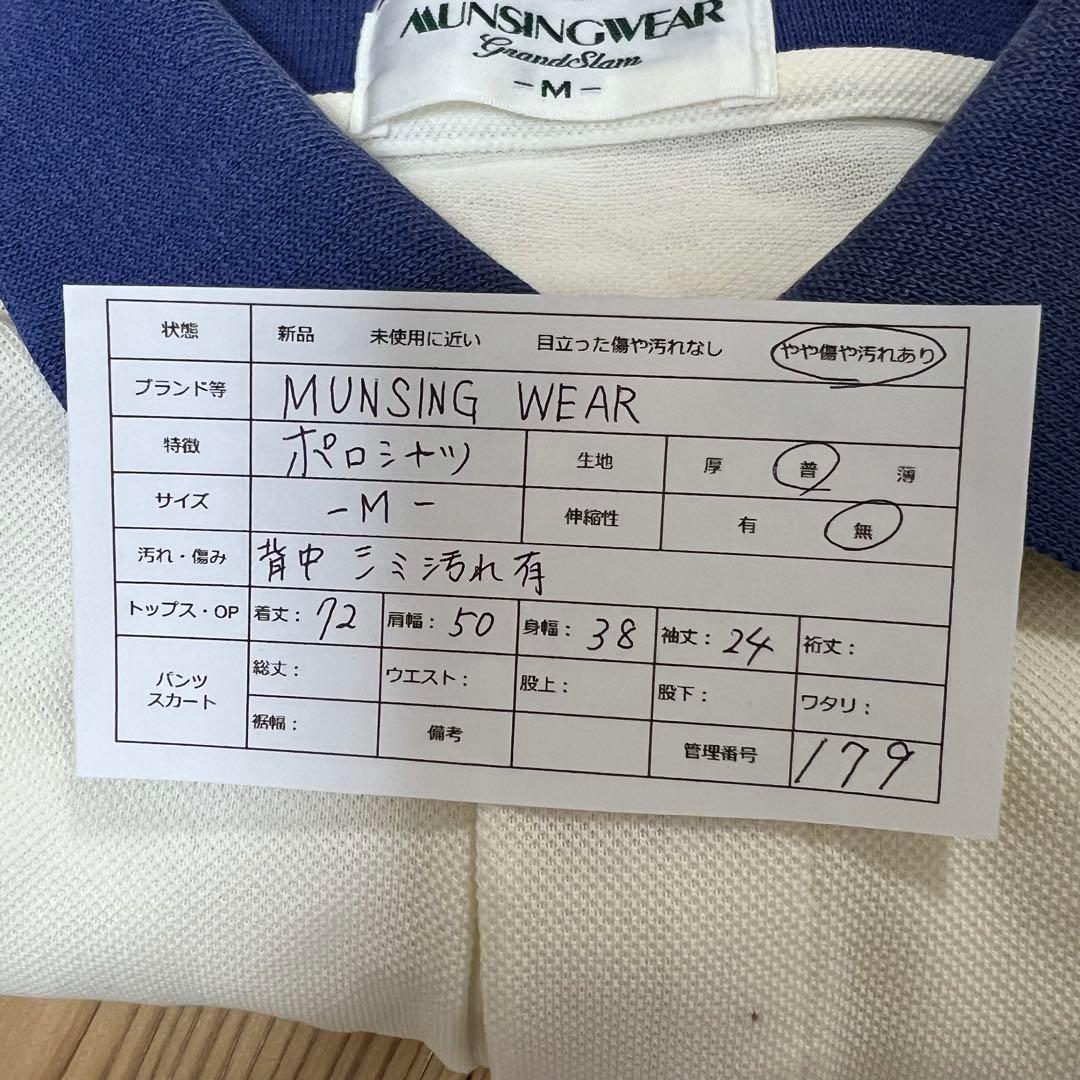 MUNSINGWEAR
GrandSlam
-M-
状態 新品 未使用に近い 目立った傷や汚れなし やや傷や汚れあり
ブランド等 MUNSING WEAR
特徴 ポロシャツ 生地 厚 普 薄
サイズ -M- 伸縮性 有 無
汚れ・傷み 背中 シミ汚れ有
トップス・OP 着丈：72 肩幅：50 身幅：38 袖丈：24 裄丈：
パンツ
スカート
総丈： ウエスト： 股上： 股下： ワタリ：
裾幅： 備考 管理番号 179